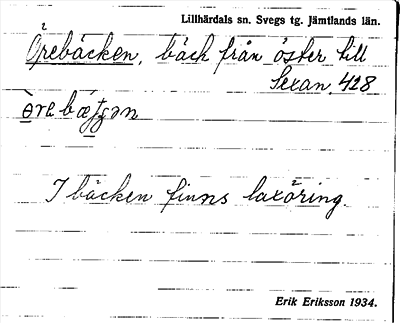 Lillhärdals sn. Svegs tg. Jämtlands län.
Örebäcken, bäck från öster till
Sexan. 428
I bäcken finns laxöring.
Erik Eriksson 1934.